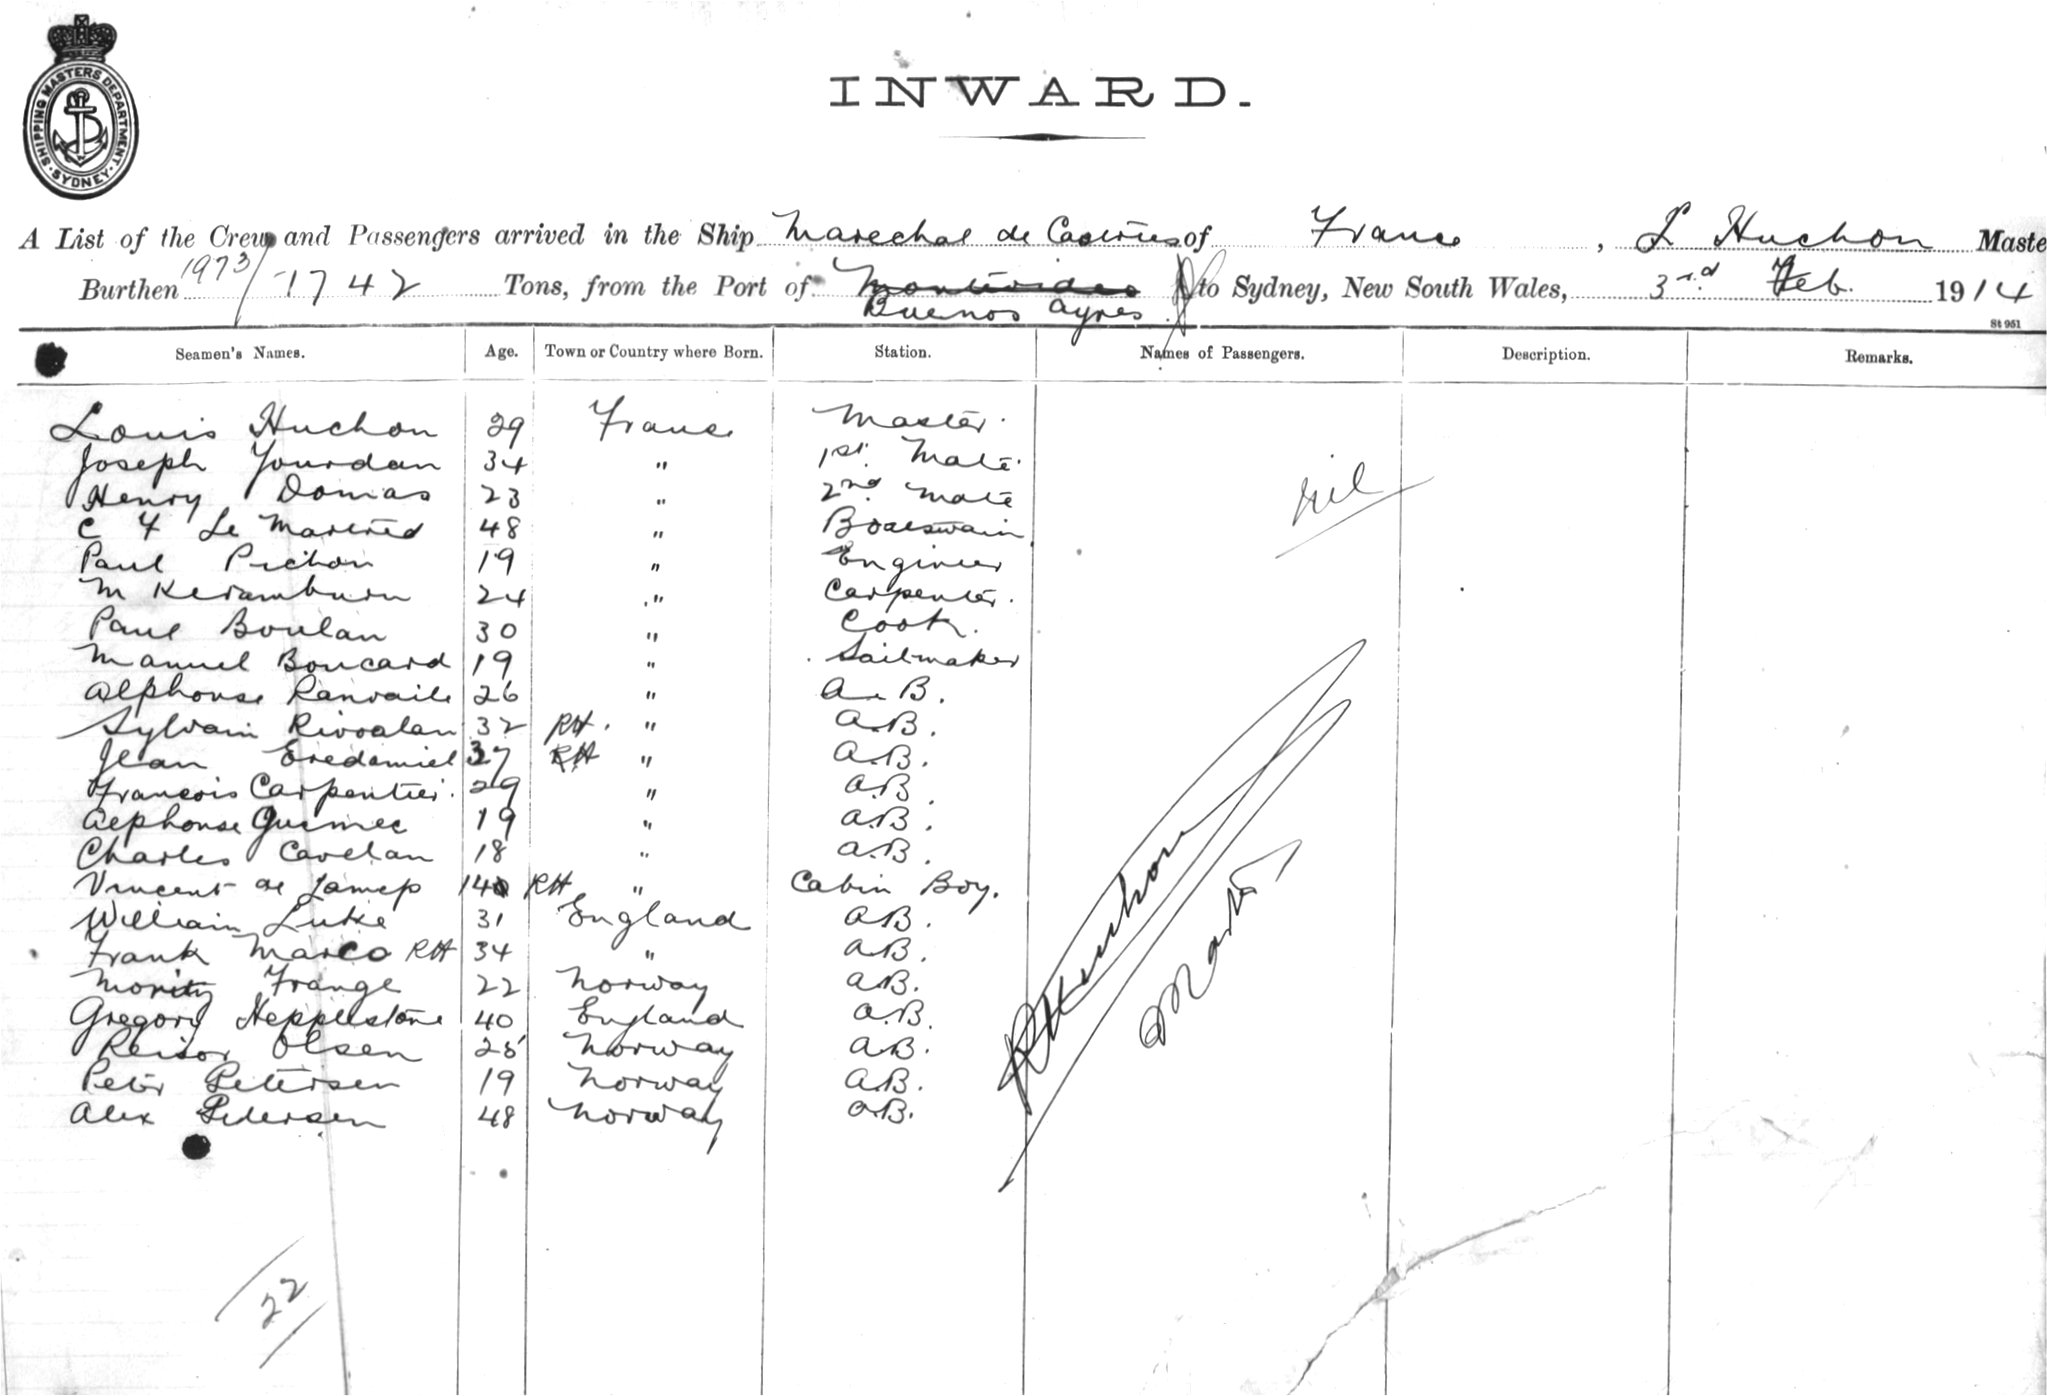 SHIPPING MASTERS DEPARTMENT · SYDNEY ·
INWARD.
A List of the Crew and Passengers arrived in the Ship Marechal de Castries of France, L Huchon Maste
Burthen 1973/1742 Tons, from the Port of Montevideo to Sydney, New South Wales, 3rd Feb. 1914
Buenos Ayres
St 951
Seamen's Names. Age. Town or Country where Born. Station. Names of Passengers. Description. Remarks.
Louis Huchon 29 France Master.
Joseph Jourdan 34 " 1st. Mate
Henry Domas 23 " 2nd. Mate
nil
C F Le 48 " Boatswain
Paul Pichon 19 " Engineer
M Kerambrun 24 " Carpenter.
Paul Boulan 30 " Cook.
Manuel Boucard 19 " Sailmaker
Alphonse 26 " A.B.
Sylvain Rivoalan 32 RH. " A.B.
Jean 37 RH " A.B.
Francois Carpentier. 29 " A.B.
Alphonse Guemec 19 " A.B.
Charles Cavelan 18 " A.B.
Vincent de 14 RH " Cabin Boy.
William Luke 31 England A.B.
Frank Marco RH 34 " A.B.
Moritz Frange 22 Norway A.B.
Gregory Hepplestone 40 England A.B.
Reidor Olsen 25 Norway A.B.
Peter Petersen 19 Norway A.B.
Alex Pedersen 48 Norway A.B.
Huchon
Master
22